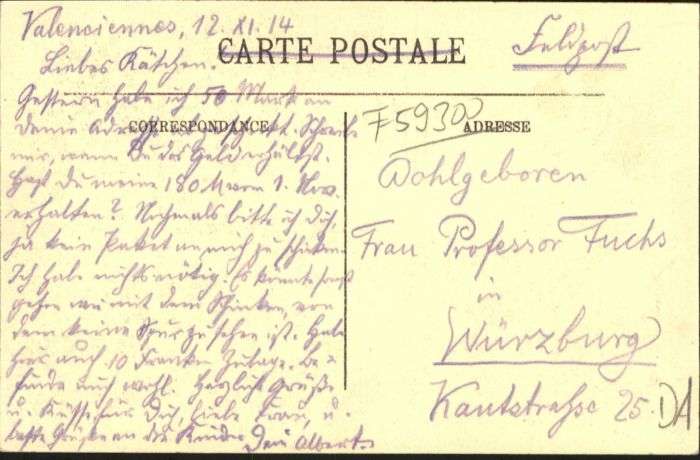 Valenciennes, 12. XI. 14
CARTE POSTALE
Feldpost
Liebes Käthchen.
Gestern habe ich 50 Mark an
Deine Adresse abgeschickt. Schreibe
mir, wann Du das Geld erhältst.
Hast Du meine 180 M vom 1. Nov.
erhalten? Nochmals bitte ich Dich,
ja kein Paket an mich zu schicken.
Ich habe nichts nötig. Es könnte sonst
gehen wie mit dem Schinken, von
dem keine Spur zu sehen ist. Habe
hier auch 10 Franken Zulage. Be-
finde mich wohl. Herzliche Grüße
u. Küsse für Dich, liebe Frau, u.
beste Grüße an die Kinder Dein Albert.
CORRESPONDANCE
F59300
ADRESSE
Wohlgeboren
Frau Professor Fuchs
in
Würzburg
Kantstrasse 25.
DA